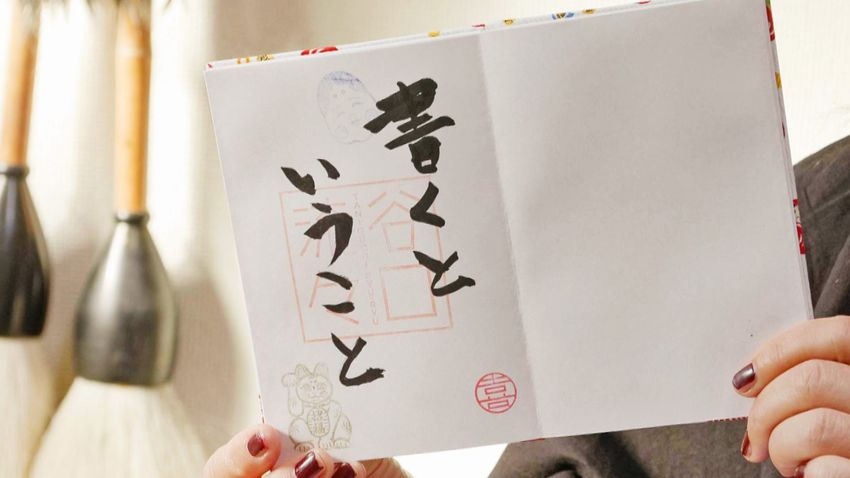 書くと
いうこと
谷口
喜